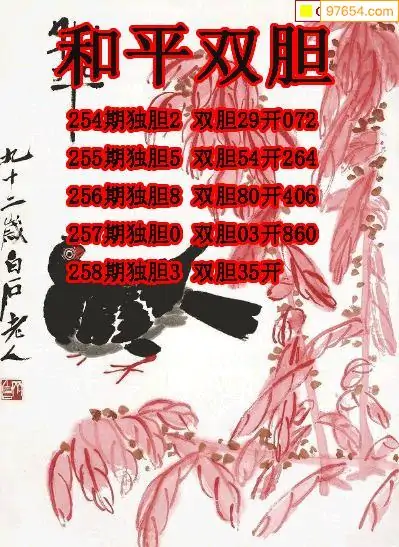 97654.com
和平双胆
254期独胆2 双胆29开072
255期独胆5 双胆54开264
256期独胆8 双胆80开406
257期独胆0 双胆03开860
258期独胆3 双胆35开
九十二岁白石老人